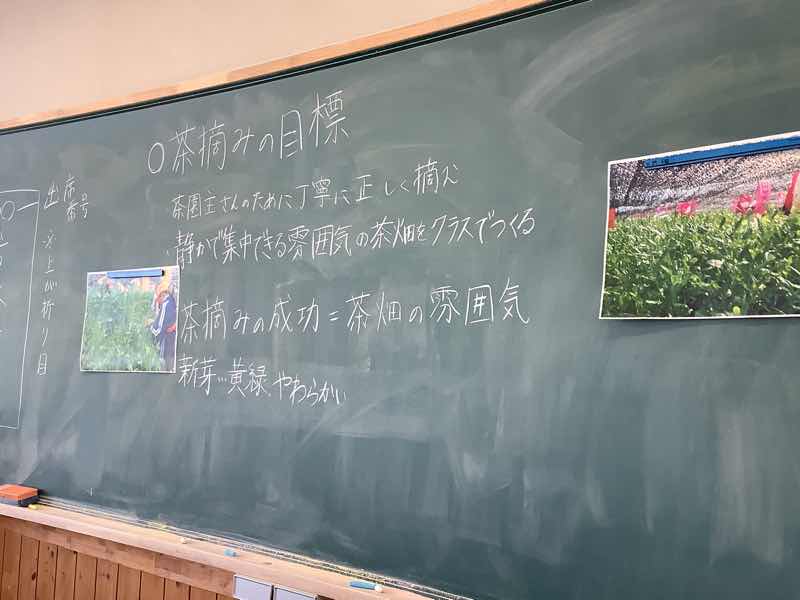 〇茶摘みの目標
茶園主さんのために丁寧に正しく摘む
静かで集中できる雰囲気の茶畑をクラスでつくる
茶摘みの成功=茶畑の雰囲気
新芽…黄緑、やわらかい
出席
番号
※上が折り目